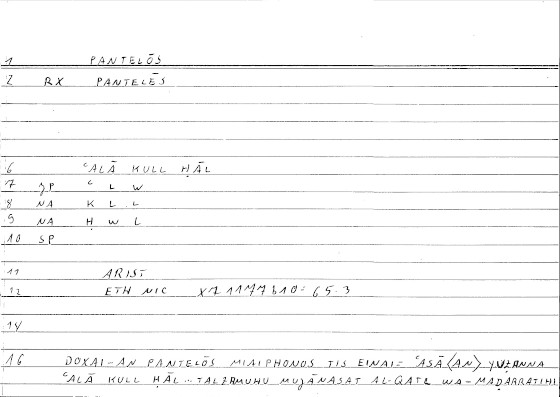 1 PANTELŌS
2 RX PANTELĒS
6 ʿALĀ KULL ḤĀL
7 JP ʿ L W
8 NA K L L
9 NA Ḥ W L
10 SP
11 ARIST
12 ETH NIC X7 1177b10= 65.3
14
16 DOXAI-AN PANTELŌS MIAIPHONOS TIS EINAI= ʿASĀ〈AN〉 YUẒANNA
ʿALĀ KULL ḤĀL.. MUJĀNASAT AL-QATL WA-MAḌARRATIHI